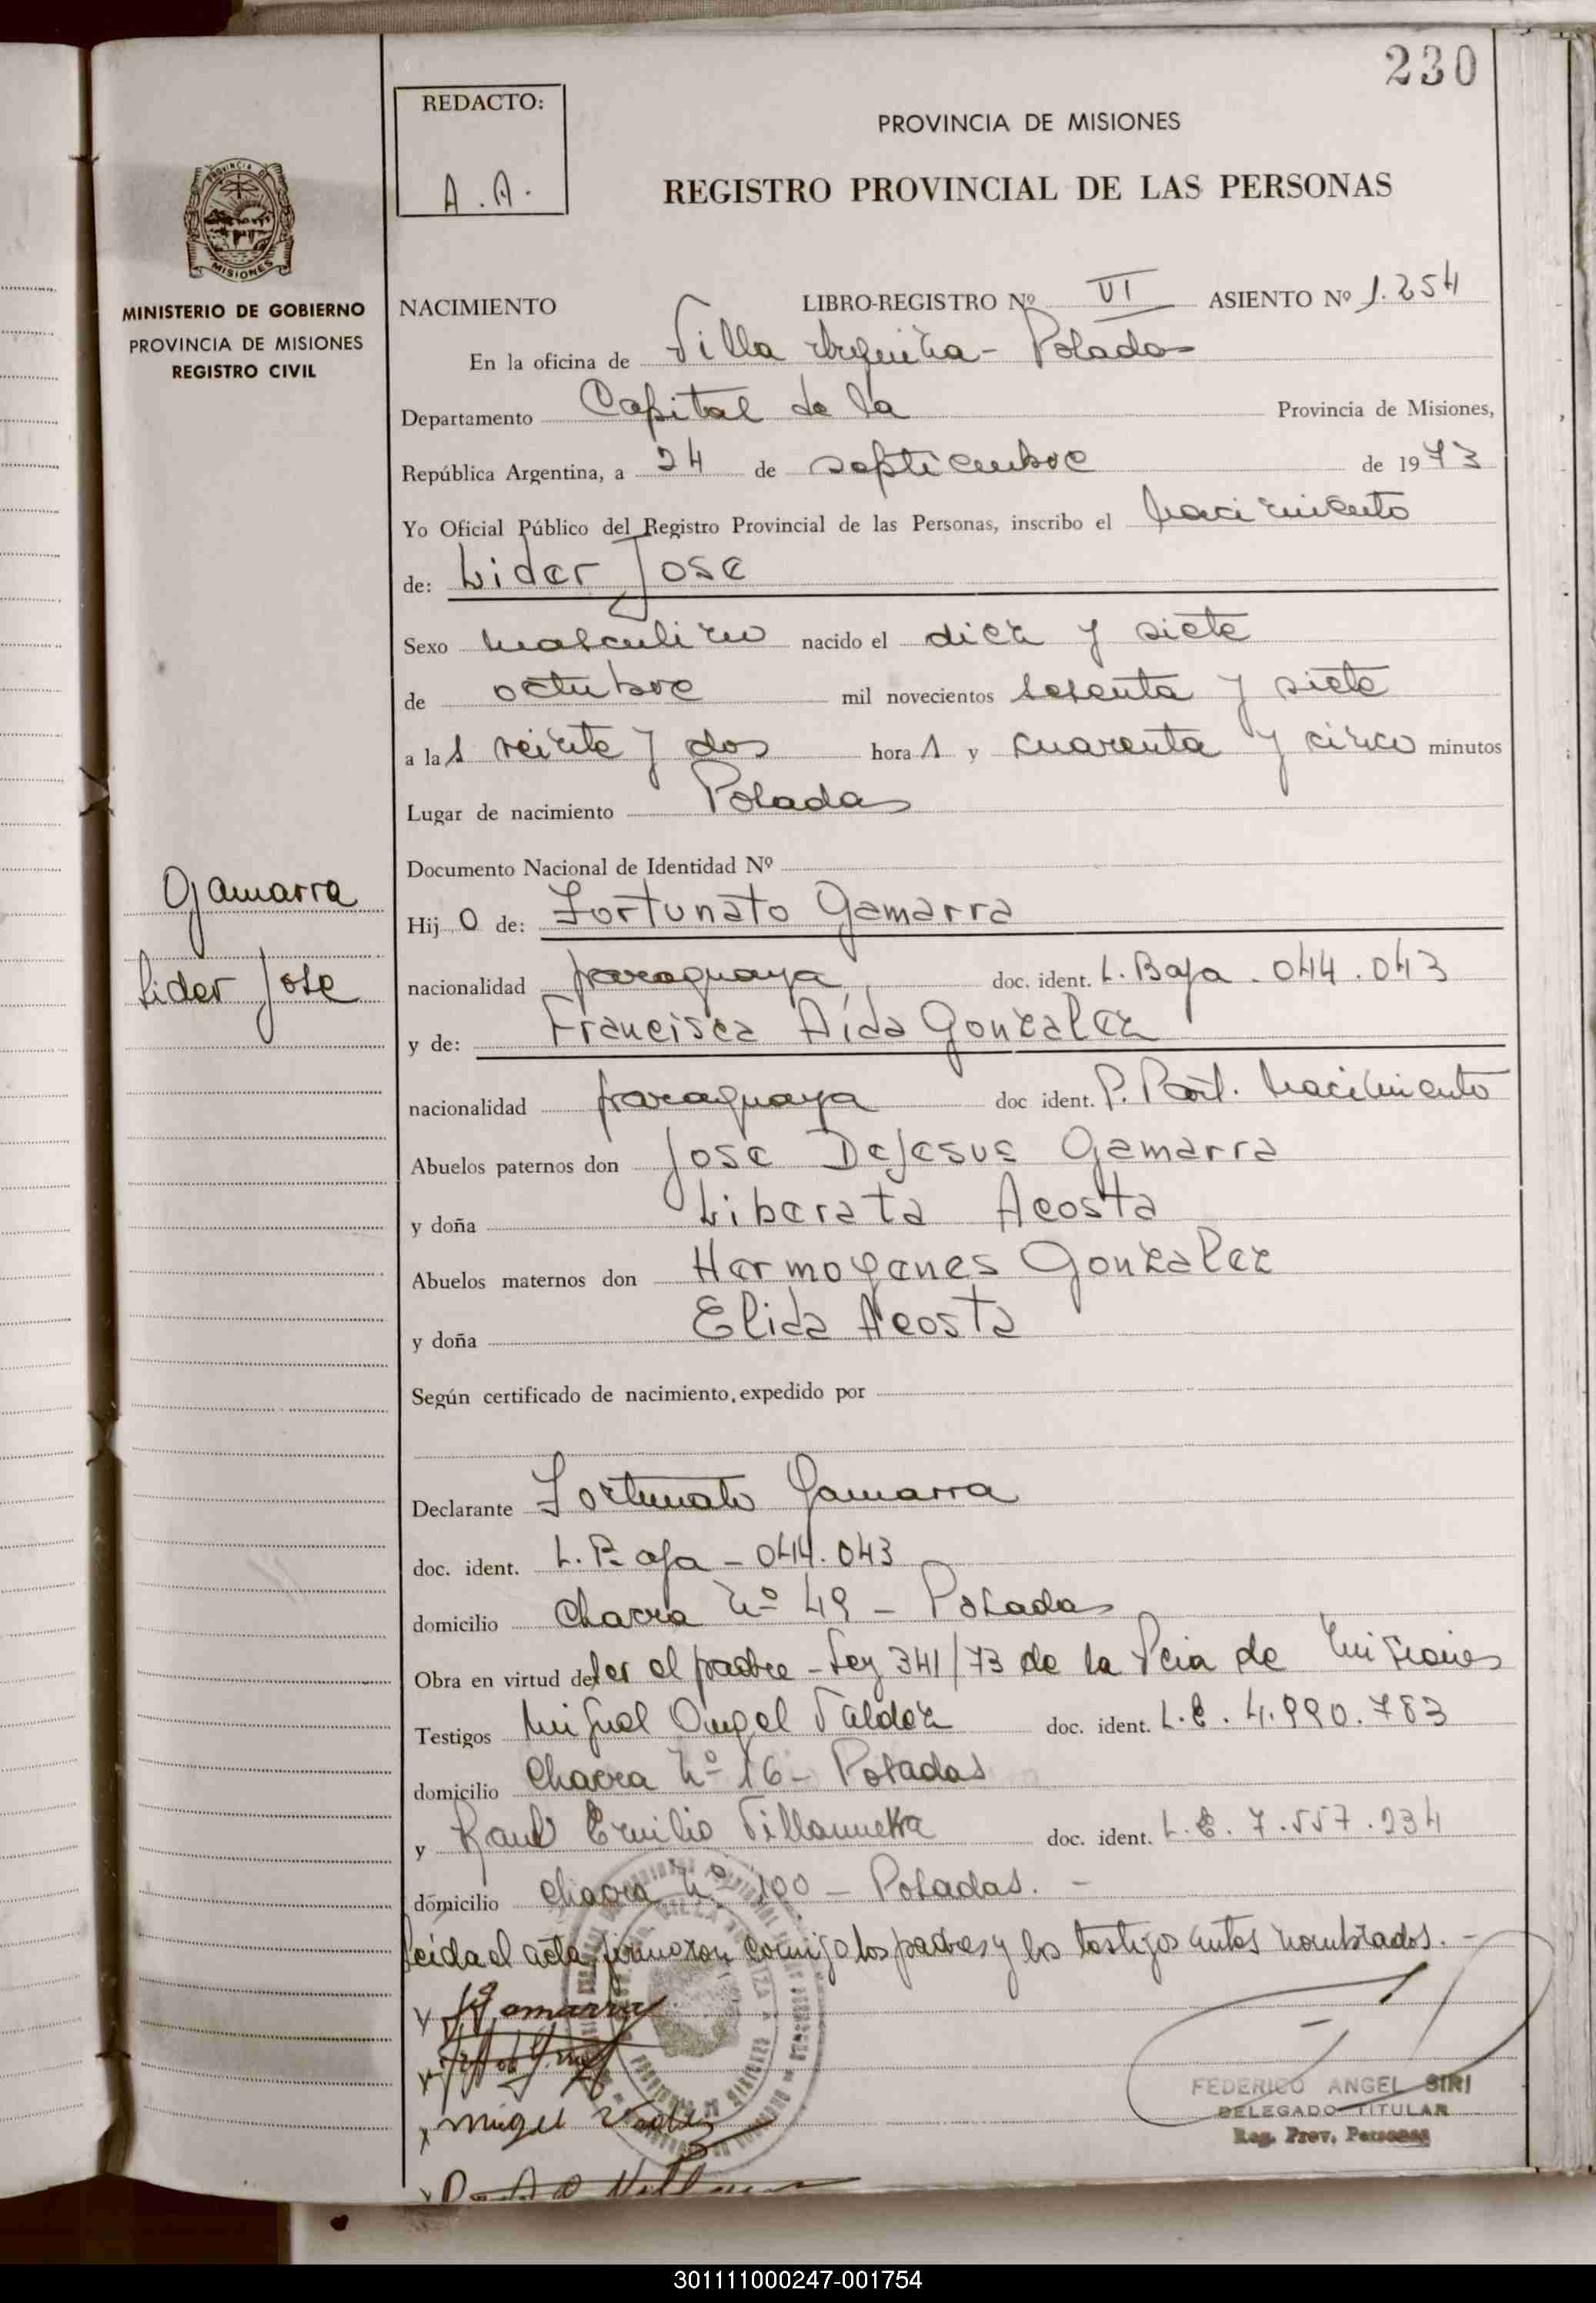 230
REDACTO:
A.A.
PROVINCIA DE MISIONES
REGISTRO PROVINCIAL DE LAS PERSONAS
MISIONES
MINISTERIO DE GOBIERNO
PROVINCIA DE MISIONES
REGISTRO CIVIL
NACIMIENTO LIBRO-REGISTRO Nº VI ASIENTO Nº 1.254
En la oficina de Villa Urquiza - Posadas
Departamento Capital de la Provincia de Misiones,
República Argentina, a 24 de septiembre de 1973
Yo Oficial Público del Registro Provincial de las Personas, inscribo el nacimiento
de: Lider Jose
Sexo masculino nacido el diez y siete
de octubre mil novecientos sesenta y siete
a las veinte y dos horas y cuarenta y cinco minutos
Lugar de nacimiento Posadas
Documento Nacional de Identidad Nº
Gamarra
Lider Jose
Hijo de: Fortunato Gamarra
nacionalidad paraguaya doc. ident. L. Baja - 044.043
y de: Francisca Aída Gonzalez
nacionalidad paraguaya doc ident. P. Part. Nacimiento
Abuelos paternos don Jose DeJesus Gamarra
y doña Liberata Acosta
Abuelos maternos don Hermogenes Gonzalez
y doña Elida Acosta
Según certificado de nacimiento, expedido por
Declarante Fortunato Gamarra
doc. ident. L. Baja - 044.043
domicilio Chacra Nº 49 - Posadas
Obra en virtud de ser el padre - Ley 341/73 de la Pcia de Misiones
Testigos Miguel Angel Valdez doc. ident. L.E. 4.990.783
domicilio Chacra Nº 16 - Posadas
y Raul Emilio Villanueva doc. ident. L.E. 7.557.234
domicilio Chacra Nº 100 - Posadas. -
Leida el acta, firmaron conmigo los padres y los testigos antes nombrados. -
Gamarra
Migel Valdez
FEDERICO ANGEL SIRI
DELEGADO TITULAR
Reg. Prov. Personas
301111000247-001754